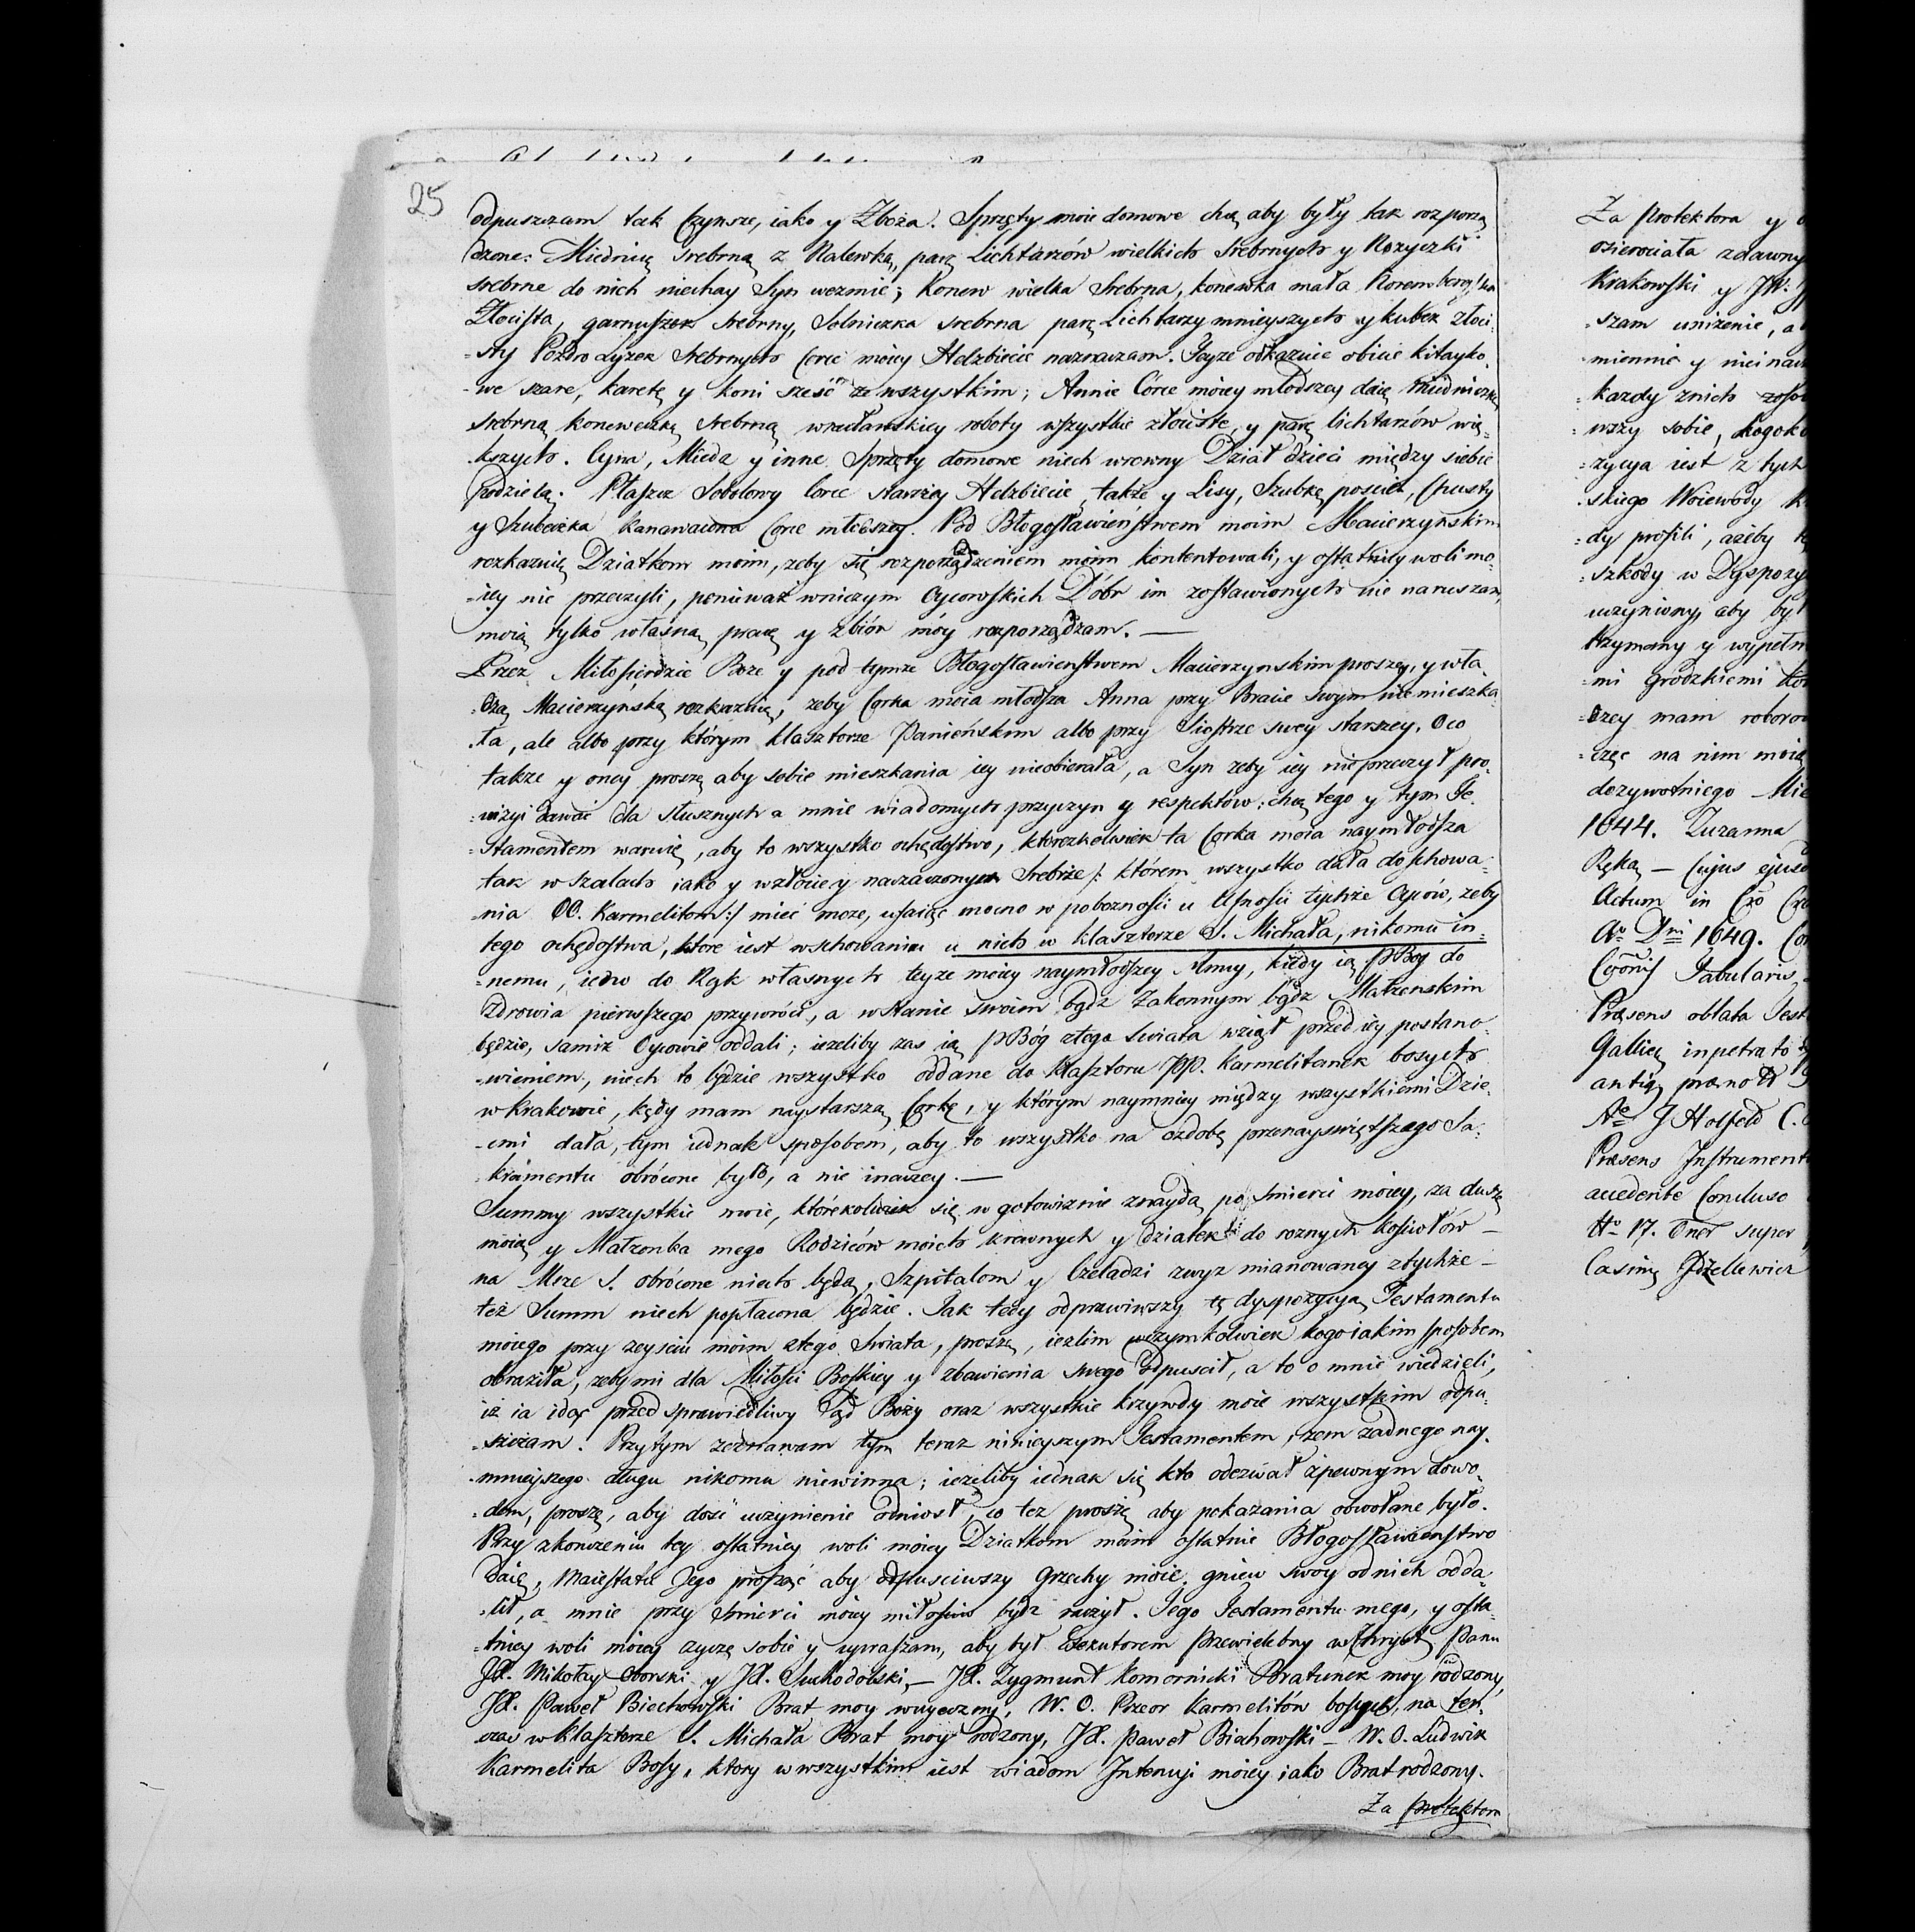 25
odpuszczam tak Czynsze, iako y Zboża. Sprzęty moie domowe chcę aby były tak rozporzą
dzone: Miednicę srebrną z Nalewką, parę Lichtarzów wielkich Srebrnych y Nożyczki
srebrne do nich niechay Syn weźmie; Konew wielka Srebrna, konewka mała
Złocista, garnuszek srebrny, Solniczka srebrna parę Lichtarzy mnieyszych y kubek złoci-
=sty Łyżek Srebrnych Corce moiey Helzbiecie naznaczam. Teyże obicie kitayko
-we szare, karetę y koni sześć ze wszystkim; Annie Córce moiey młodszey daię miedniczkę
srebrną koneweczkę srebrną wrocławskiey roboty wszystkie złociste, y parę lichtarzów wię=
kszych. Cyna, Miedz y inne Sprzęty domowe niech wrowny Dział dzieci między siebie
podzielą. Płaszcz Sobolowy Corce starszey Helzbiecie, także y Lisy, Szubkę pościel, Chusty
y Szubeczka Corce młodszey. Pod Błogosławieństwem moim Macierzyńskim
rozkazuię Dziatkom moim, zeby się rozporządzeniem moim kontentowali, y ostatniey woli mo=
=iey nie przeczyli, ponieważ wniczym Oycowskich Dóbr im zostawionych nie naruszam,
moią tylko własną pracę y zbiór móy rozporządzam. —
Przez Miłosierdzie Boże y pod tymze Błogosławienstwem Macierzynskim proszę, y wła
=dzą Macierzyńską rozkazuię, zeby Corka moia młodsza Anna przy Bracie swym nie mieszka
=ła, ale albo przy którym klasztorze Panieńskim albo przy Siostrze swey starszey. Oco
także y oney proszę aby sobie mieszkania iey nieobierała, a Syn zeby iey nie przeczył pro=
=wizyi dawać dla słusznych a mnie wiadomych przyczyn y respektów: chcę tego y tym Te=
=stamentem waruię, aby to wszystko ochędostwo, ktorezkolwiek ta Corka moia naymłodsza
tak w szatach iako y wzłocie y naznaczonym Srebrze /: którem wszystko dała doschowa=
=nia OO. Karmelitom :/ mieć może, ufaiąc mocno w pobożności u Ufności tychże Oyców, zeby
tego ochędostwa, ktore iest wschowaniu u nich w klasztorze S. Michała, nikomu in=
=nemu, iedno do Rąk własnych teyże moiey naymłodszey Anny, kiedy ią P Bóg do
Zdrowia pierwszego przywróci, a wstanie swoim bądz Zakonnym bądz Małżenskim
będzie, samiż Oycowie oddali; ieżeliby zas ią P Bóg ztego Swiata wziął przed iey postano=
=wieniem, niech to będzie wszystko oddane do klasztoru PP. Karmelitanek bosych
w Krakowie, kędy mam naystarszą Corkę, y którym naymniey między wszystkiemi Dzie=
=cmi dała, tym iednak sposobem, aby to wszystko na ozdobę przenayświętszego Sa=
kramentu obrócone było, a nie inaczey. —
Summy wszystkie moie, którekolwiek się w gotowiznie znaydą po śmierci moiey, za duszę
moią y Małzonka mego Rodziców moich krewnych y dziatek do roznych kosciołów —
na Msze S. obrócone niech będą, Szpitalom y Czeladzi zwyz mianowaney ztychże —
też Summ niech popłacona będzie. Tak tedy odprawiwszy tę dyspozycyą Testamentu
moiego przy zeysciu moim ztego Swiata, proszę, iezlim wczymkolwiek kogo iakim sposobem
obraziła, zeby mi dla Miłości Boskiey y zbawienia swego odpuscił, a to o mnie wiedzieli,
iż ia idąc przed sprawiedliwy Sąd Boży oraz wszystkie krzywdy moie wszystkim odpu=
=szczam. Przytym zeznawam tym teraz ninieyszym Testamentem, zem zadnego nay=
mnieyszego długu nikomu niewinna; ieżeliby iednak się kto odezwał zpewnym dowo=
=dem, proszę, aby dość uczynienie odniosł, co też proszę aby pokazania obwołane było.
Przy zkończeniu tey ostatniey woli moiey Dziatkom moim ostatnie Błogosławienstwo
daię, Maiestatu Jego prosząc aby odpusciwszy grzechy moie, gniew swoy od nich odda=
=lił, a mnie przy Smierci moiey miłosciw bydz raczył. Tego Testamentu mego, y osta=
=tniey woli moiey zyczę sobie y upraszam, aby był Exekutorem Przewielebny w Chrystę Panu
Jł. Mikołay Oborski y Jł. Suchodolski, — Jł. Zygmunt Komornicki Bratunek moy rodzony,
Jł. Paweł Biechowski Brat moy wuyeczny, W. O. Przeor Karmelitów bosych, na ten
czas w klasztorze S. Michała Brat moy rodzony, Jł. Paweł Biechowski — W. O. Ludwik
Karmelita Bosy, ktory wwszystkim iest wiadom Intencyi moiey iako Brat rodzony.
Za protektora
Za Protektora y
osierociała zdawny
Krakowski y JW.
=szam unizenie, a
=miennie y
każdy znich
=wszy sobie, kogok
=zycya iest z tych
=skiego Woiewody
=dy prosili, ażeby
=szkody w Dyspozy
uczyniony, aby był
trzymany y wypełn
=mi Grodzkiemi
=dzey mam roboro
=częc na nim moią
dozywotniego Mie
1644. Zuzanna
Ręką — Cujus ejusd
Actum in
Ao Dni 1649.
Tabularis
Præsens oblata Test
Gallicą inpetrato
antiq.
J Holfeld C.
Præsens Instrument
accedente Concluso
No 17. super
Casimę